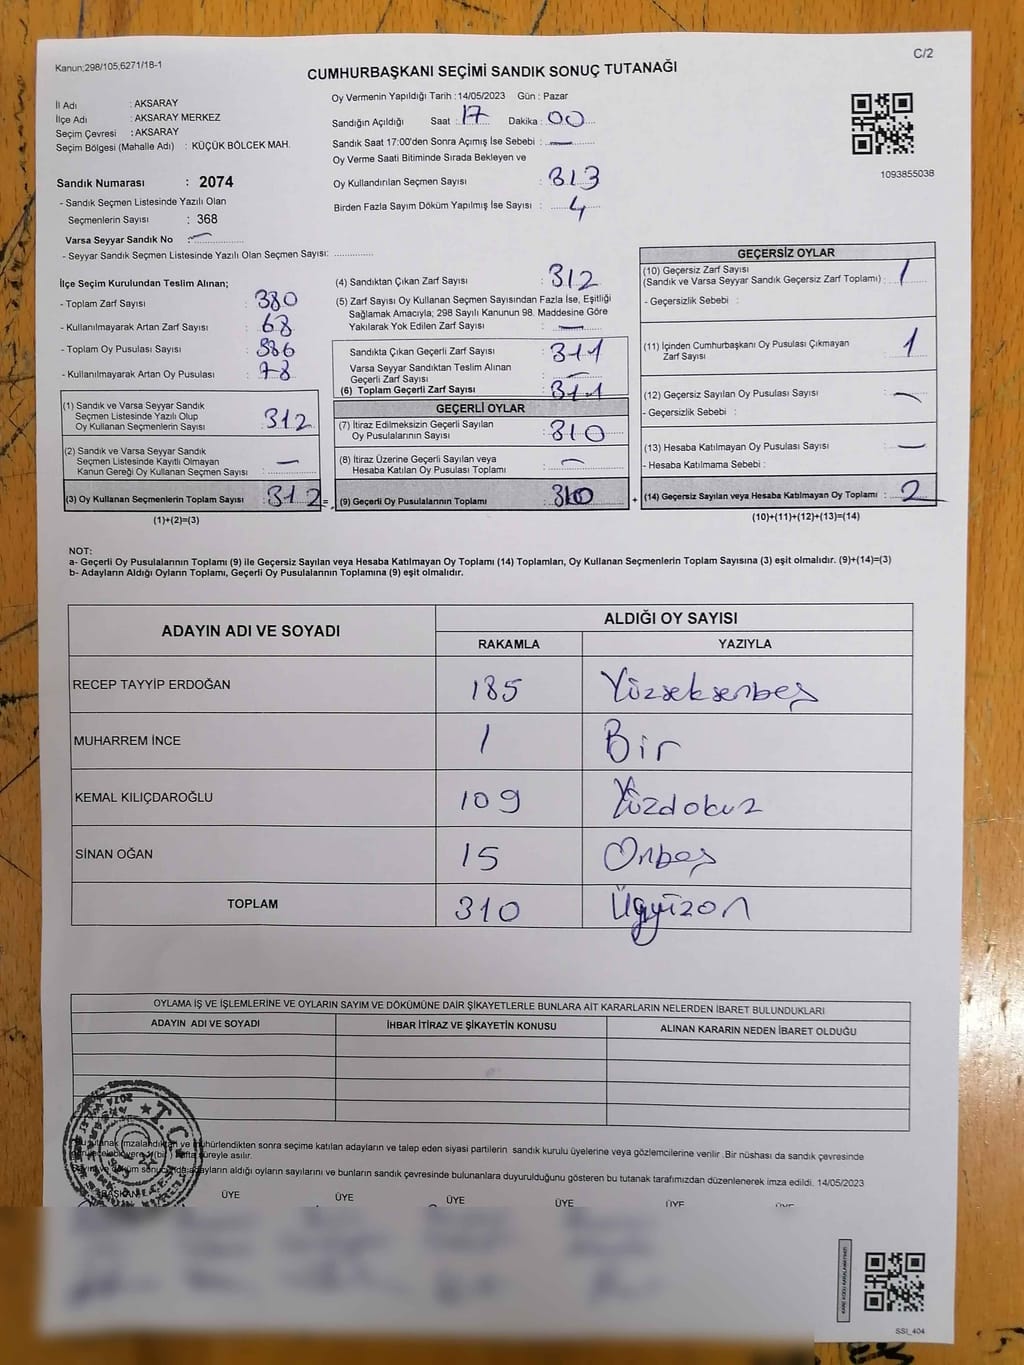 Kanun;298/105,6271/18-1
C/2
CUMHURBAŞKANI SEÇİMİ SANDIK SONUÇ TUTANAĞI
İl Adı : AKSARAY
İlçe Adı : AKSARAY MERKEZ
Seçim Çevresi : AKSARAY
Seçim Bölgesi (Mahalle Adı) : KÜÇÜK BÖLCEK MAH.
Sandık Numarası : 2074
- Sandık Seçmen Listesinde Yazılı Olan
Seçmenlerin Sayısı : 368
Varsa Seyyar Sandık No : —
- Seyyar Sandık Seçmen Listesinde Yazılı Olan Seçmen Sayısı: ............
Oy Vermenin Yapıldığı Tarih :14/05/2023 Gün : Pazar
Sandığın Açıldığı Saat : 17 Dakika : 00
Sandık Saat 17:00'den Sonra Açımış İse Sebebi : —
Oy Verme Saati Bitiminde Sırada Bekleyen ve
Oy Kullandırılan Seçmen Sayısı : 313
Birden Fazla Sayım Döküm Yapılmış İse Sayısı : 4
1093855038
İlçe Seçim Kurulundan Teslim Alınan;
- Toplam Zarf Sayısı : 380
- Kullanılmayarak Artan Zarf Sayısı : 68
- Toplam Oy Pusulası Sayısı : 386
- Kullanılmayarak Artan Oy Pusulası : 78
(1) Sandık ve Varsa Seyyar Sandık
Seçmen Listesinde Yazılı Olup
Oy Kullanan Seçmenlerin Sayısı : 312
(2) Sandık ve Varsa Seyyar Sandık
Seçmen Listesinde Kayıtlı Olmayan
Kanun Gereği Oy Kullanan Seçmen Sayısı : —
(3) Oy Kullanan Seçmenlerin Toplam Sayısı : 312 =
(1)+(2)=(3)
(4) Sandıktan Çıkan Zarf Sayısı : 312
(5) Zarf Sayısı Oy Kullanan Seçmen Sayısından Fazla İse, Eşitliği
Sağlamak Amacıyla; 298 Sayılı Kanunun 98. Maddesine Göre
Yakılarak Yok Edilen Zarf Sayısı : —
Sandıkta Çıkan Geçerli Zarf Sayısı : 311
Varsa Seyyar Sandıktan Teslim Alınan
Geçerli Zarf Sayısı : —
(6) Toplam Geçerli Zarf Sayısı : 311
GEÇERLİ OYLAR
(7) İtiraz Edilmeksizin Geçerli Sayılan
Oy Pusulalarının Sayısı : 310
(8) İtiraz Üzerine Geçerli Sayılan veya
Hesaba Katılan Oy Pusulası Toplamı : —
(9) Geçerli Oy Pusulalarının Toplamı : 310 +
GEÇERSİZ OYLAR
(10) Geçersiz Zarf Sayısı
(Sandık ve Varsa Seyyar Sandık Geçersiz Zarf Toplamı) : 1
- Geçersizlik Sebebi :
(11) İçinden Cumhurbaşkanı Oy Pusulası Çıkmayan
Zarf Sayısı : 1
(12) Geçersiz Sayılan Oy Pusulası Sayısı : —
- Geçersizlik Sebebi :
(13) Hesaba Katılmayan Oy Pusulası Sayısı : —
- Hesaba Katılmama Sebebi :
(14) Geçersiz Sayılan veya Hesaba Katılmayan Oy Toplamı : 2
(10)+(11)+(12)+(13)=(14)
NOT:
a- Geçerli Oy Pusulalarının Toplamı (9) ile Geçersiz Sayılan veya Hesaba Katılmayan Oy Toplamı (14) Toplamları, Oy Kullanan Seçmenlerin Toplam Sayısına (3) eşit olmalıdır. (9)+(14)=(3)
b- Adayların Aldığı Oyların Toplamı, Geçerli Oy Pusulalarının Toplamına (9) eşit olmalıdır.
ADAYIN ADI VE SOYADI
ALDIĞI OY SAYISI
RAKAMLA YAZIYLA
RECEP TAYYİP ERDOĞAN 185 Yüzseksenbeş
MUHARREM İNCE 1 Bir
KEMAL KILIÇDAROĞLU 109 Yüzdokuz
SİNAN OĞAN 15 Onbeş
TOPLAM 310 Üçyüzon
OYLAMA İŞ VE İŞLEMLERİNE VE OYLARIN SAYIM VE DÖKÜMÜNE DAİR ŞİKAYETLERLE BUNLARA AİT KARARLARIN NELERDEN İBARET BULUNDUKLARI
ADAYIN ADI VE SOYADI İHBAR İTİRAZ VE ŞİKAYETİN KONUSU ALINAN KARARIN NEDEN İBARET OLDUĞU
T.C.
2074
imzalandıktan ve mühürlendikten sonra seçime katılan adayların ve talep eden siyasi partilerin sandık kurulu üyelerine veya gözlemcilerine verilir .Bir nüshası da sandık çevresinde
(bir) hafta süreyle asılır.
adayların aldığı oyların sayılarını ve bunların sandık çevresinde bulunanlara duyurulduğunu gösteren bu tutanak tarafımızdan düzenlenerek imza edildi. 14/05/2023
BAŞKAN ÜYE ÜYE ÜYE ÜYE ÜYE ÜYE
SSI_404